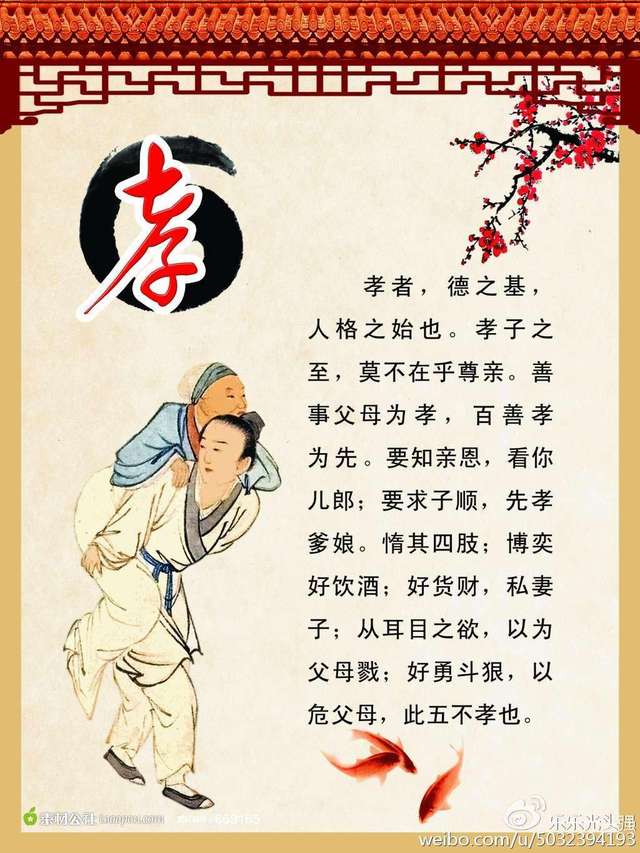 孝
孝者，德之基，
人格之始也。孝子之
至，莫不在乎尊亲。善
事父母为孝，百善孝
为先。要知亲恩，看你
儿郎；要求子顺，先孝
爹娘。惰其四肢；博奕
好饮酒；好货财，私妻
子；从耳目之欲，以为
父母戮；好勇斗狠，以
危父母，此五不孝也。
素材公社 tooopen.com
乐乐光头强
weibo.com/u/5032394193